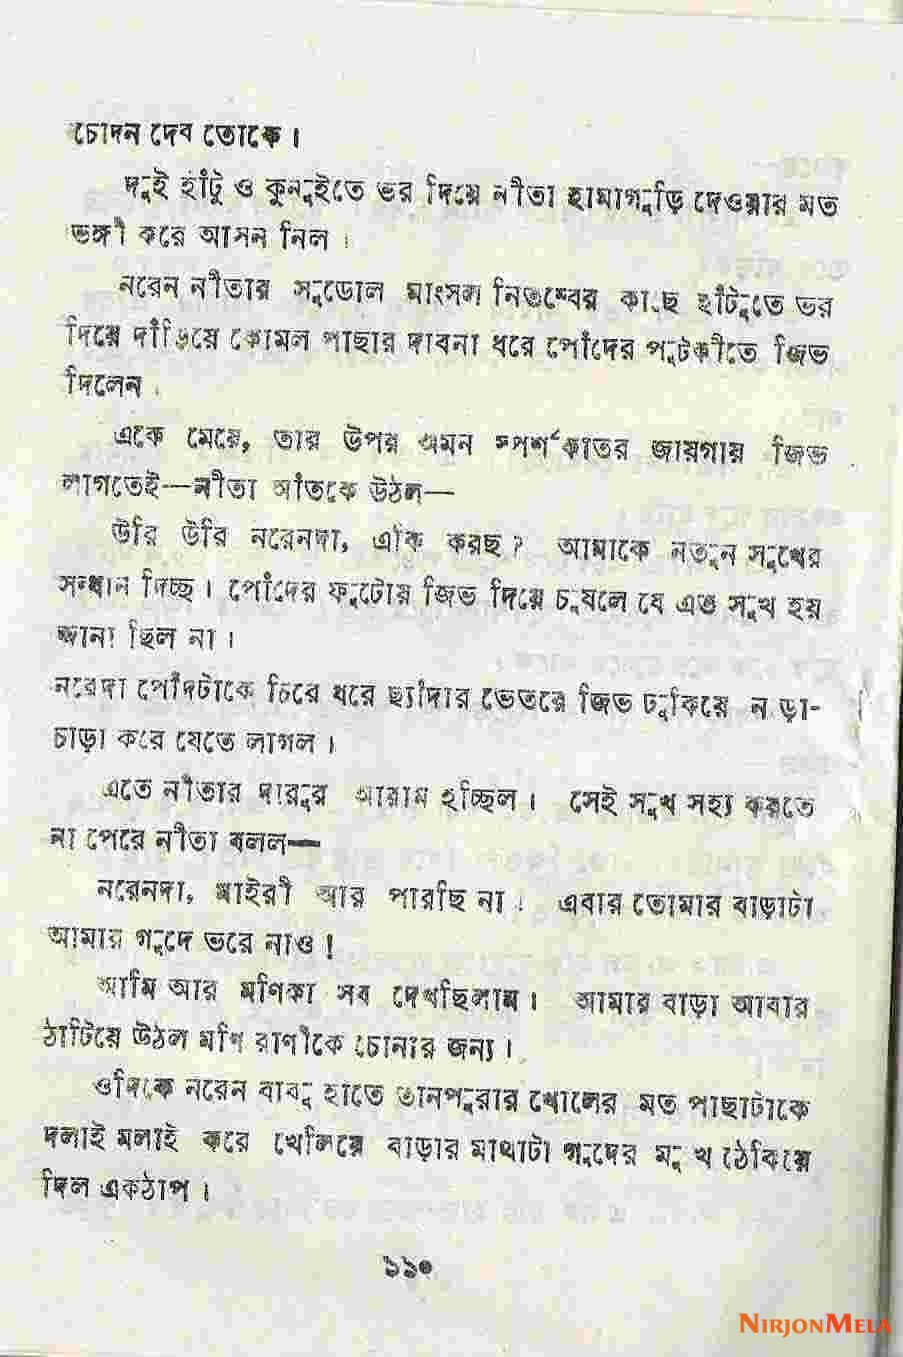 চোদন দেব তোকে।
দুই হাঁটু ও কুনুইতে ভর দিয়ে নীতা হামাগুড়ি দেওয়ার মত
ভঙ্গী করে আসন নিল।
নরেন নীতার সুডোল মাংসল নিতম্বের কাছে হাঁটুতে ভর
দিয়ে দাঁড়িয়ে কোমল পাছার দাবনা ধরে পোঁদের পুটকীতে জিভ
দিলেন।
একে মেয়ে, তার উপর এমন স্পর্শকাতর জায়গায় জিভ
লাগতেই—নীতা আঁতকে উঠল—
উরি উরি নরেনদা, একি করছ? আমাকে নতুন সুখের
সন্ধান দিচ্ছ। পোঁদের ফুটোয় জিভ দিয়ে চুষলে যে এত সুখ হয়
জানা ছিল না।
নরেদা পোঁদটাকে চিরে ধরে ছ্যাঁদার ভেতরে জিভ ঢুকিয়ে নাড়া-
চাড়া করে যেতে লাগল।
এতে নীতার দারুর আরাম হচ্ছিল। সেই সুখ সহ্য করতে
না পেরে নীতা বলল—
নরেনদা, মাইরী আর পারছি না। এবার তোমার বাড়াটা
আমায় গুদে ভরে নাও!
আমি আর মণিকা সব দেখছিলাম। আমার বাড়া আবার
ঠাটিয়ে উঠল মণি রাণীকে চোনার জন্য।
ওদিকে নরেন বাবু হাতে তানপুরার খোলের মত পাছাটাকে
দলাই মলাই করে খেলিয়ে বাড়ার মাথাটা গুদের মুখে ঠেকিয়ে
দিল একঠাপ।
১১০
NIRJONMELA